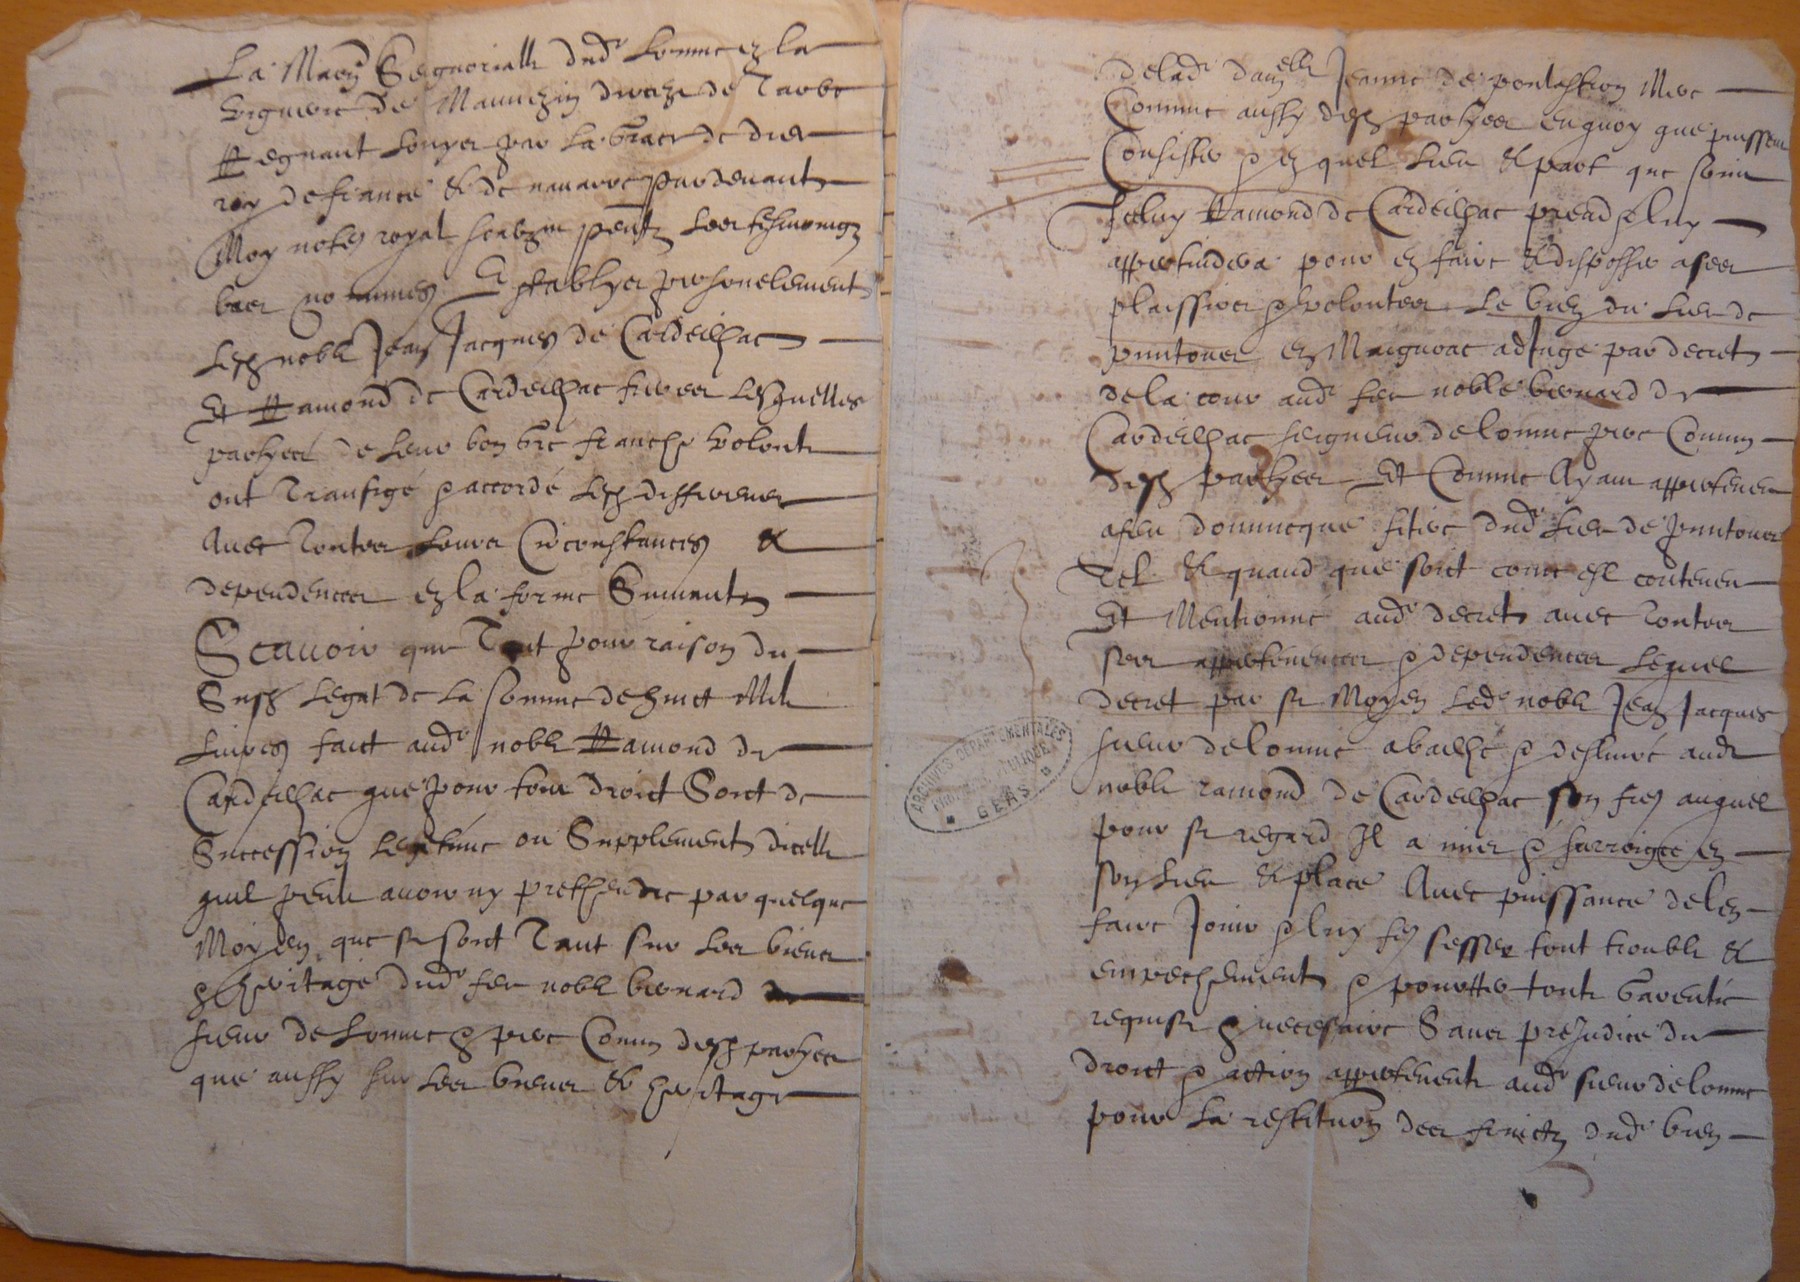 La Maon Seignorialle dudt Lomne en la
viguerie de Mauvezin dioceze de Tarbe
Regnant Louys par la grace de dieu
roy de france & de navarre par devant
Moy notere royal soubzne pntz les tesmoingz
bas nommes Establys personelement
Lesd noble Jean Jacques de Cardeilhac
Et Ramond de Cardeilhac freres Lesquelles
partyes de leur bon gre franche volonte
ont Transigé & accordé Lesd differens
Avec toutes Leurs Circonstances &
dependences en la forme Suivante
Scavoir que Tout pour raison du
Susd Legat de La somme de huict Mil
Livres faict audt noble Ramond de
Cardeilhac que pour tout droict Soict de
Succession Legitime ou Supplement dicelle
quil peult avoir ny prethendre par quelque
Moyen que se soict Tant sur les biens
& heritage dudt feu noble bernard de
sieur de Lomne & pere Comun desd partyes
que aussy sur les biens & heritage
de ladt damelle Jeanne de Mere
Comme aussy desd partyes en quoy que puissent
Consister & en quel Lieu & part que soint
Iceluy Ramond de Cardeilhac prend & luy
appertiendra pour en faire & disposser a ses
plaissirs & volontes Le bien du Lieu de
puntous en Maignoac adjugé par decret
de la cour audt feu noble bernard de
Cardeilhac seigneur de lomne pere Comun
desd partyes Et Comme Ayant appertenu
a feu domenicque fitere dudt Lieu de puntous
Tel & quand que soict come est contenu
Et Mentionne audt decret avec toutes
ses appertenences & dependences Lequel
decret par se Moyen Ledt noble Jean Jacques
sieur de lomne a bailhe & deslivré audt
noble ramond de Cardeilhac son frere auquel
pour se regard Il a mis & surroigée en
son Lieu & place Avec puissance de len
faire Jouir & luy fere sesser tout trouble &
empechement & pourtter toute garentie
requise & necesaire Sans prejudice du
droict & action appertenente audt sieur de lomne
pour La restitution des fruictz dudt bien
ARCHIVES DÉPARTEMENTALES
GERS